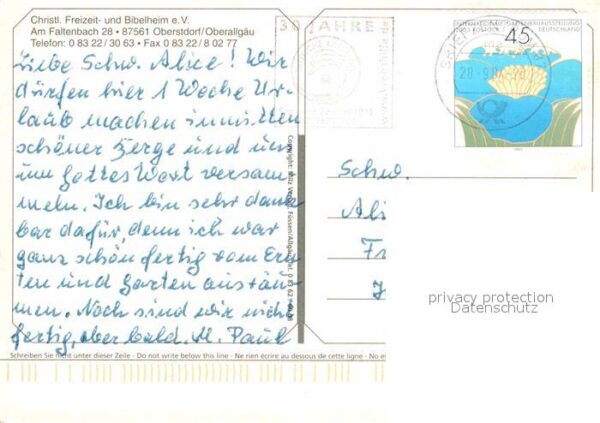 Christl. Freizeit- und Bibelheim e. V.
Am Faltenbach 28 • 87561 Oberstdorf/Oberallgäu
Telefon: 0 83 22 / 30 63 • Fax 0 83 22 / 8 02 77
Liebe Schw. Alice! Wir
dürfen hier 1 Woche Ur-
laub machen inmitten
schöner Berge und uns
um Gottes Wort versam-
meln. Ich bin sehr dank
bar dafür, denn ich war
ganz schön fertig vom Ern
ten und Garten ausräu-
men. Noch sind wir nicht
fertig, aber bald. M. Paul
Schreiben Sie nicht unter dieser Zeile - Do not write below this line - Ne rien écrire au dessous de cette ligne - No
Copyright: Verlag Füssen/Allgäu
30 JAHRE
INTERNATIONALE GARTENBAUAUSSTELLUNG
2003 ROSTOCK DEUTSCHLAND
45
Schw.
Ali
privacy protection
Datenschutz